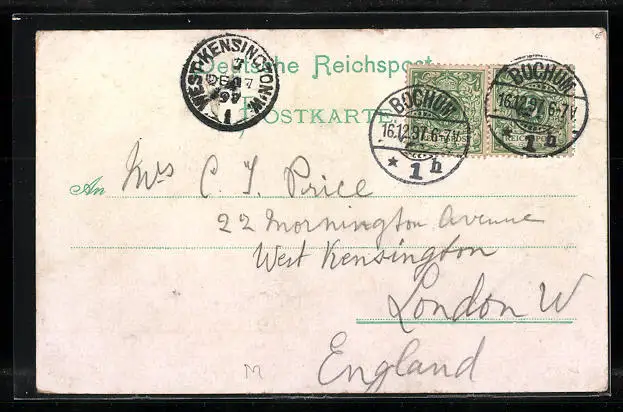 Deutsche Reichspost
POSTKARTE
WEST-KENSINGTON.W.
BOCHUM
16.12.97.6-7V.
* 1 h
BOCHUM
16.12.97.6-7V.
* 1 h
An Mrs C. J. Price
22 Mornington Avenue
West Kensington
London W
England
M